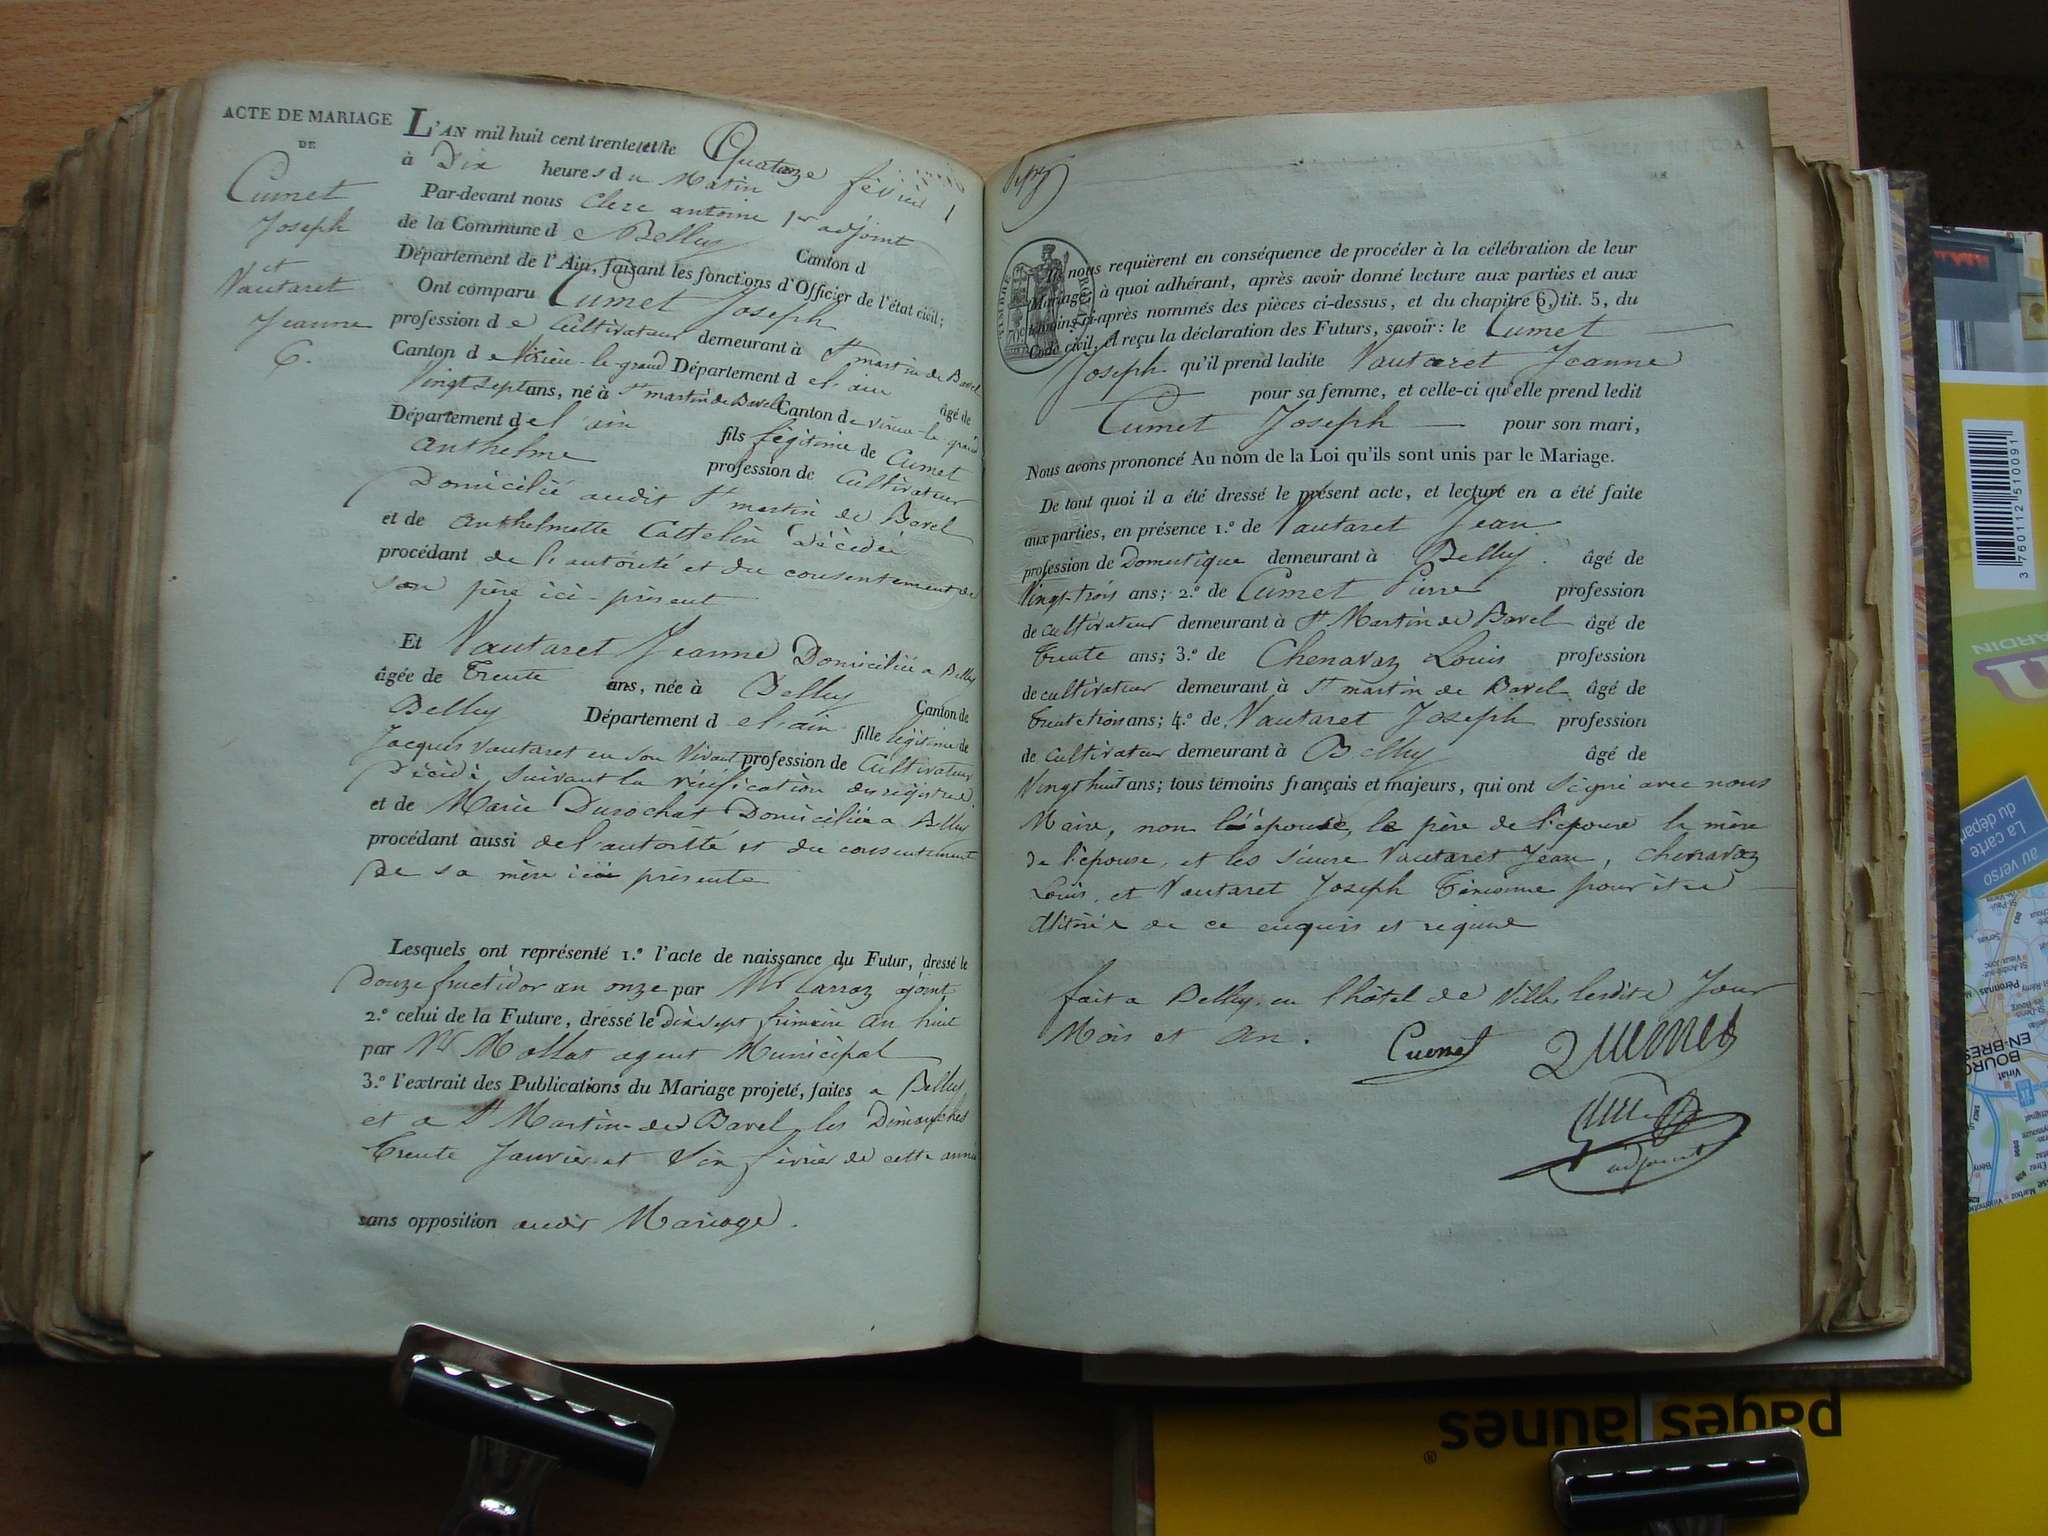 ACTE DE MARIAGE
DE
Cumet
Joseph
et
Vautaret
Jeanne
6.
L'AN mil huit cent trente et le Quatorze février
à Dix heures du Matin
Par-devant nous Clerc antoine 1er adjoint
de la Commune de Belley Canton d
Département de l'Ain, faisant les fonctions d'Officier de l'état civil;
Ont comparu Cumet Joseph
profession de Cultivateur demeurant à St martin de Bavel
Canton de Virieu-le-grand Département de l'ain âgé de
Vingt sept ans, né à St martin de Bavel Canton de virieu-le grand
Département de l'ain fils légitime de Cumet
anthelme profession de Cultivateur
Domicilié audit St martin de Bavel
et de anthelmette Cattelin Décédée
procédant de l'autorité et du consentement de
son père ici-présent
Et Vautaret Jeanne Domiciliée a Belley
âgée de Trente ans, née à Belley Canton de
Belley Département de l'ain fille légitime de
Jacques Vautaret en son Vivant profession de Cultivateur
Décédé, suivant la vérification du registre
et de Marie Durochat Domiciliée a Belley
procédant aussi de l'autorité et du consentement
De sa mère ici présente
Lesquels ont représenté 1.º l'acte de naissance du Futur, dressé le
Douze fructidor an onze par Mr Carraz ajoint
2.º celui de la Future, dressé le Dix sept frimaire an huit
par Mr Mollat agent Municipal
3.º l'extrait des Publications du Mariage projeté, faites a Belley
et a St Martin-de Bavel les Dimanches
Trente Janvier et Six février de cette année
sans opposition audit Mariage.
Ils nous requièrent en conséquence de procéder à la célébration de leur
Mariage, à quoi adhérant, après avoir donné lecture aux parties et aux
témoins ci-après nommés des pièces ci-dessus, et du chapitre 6, tit. 5, du
Code civil, et reçu la déclaration des Futurs, savoir: le Cumet
Joseph qu'il prend ladite Vautaret Jeanne
pour sa femme, et celle-ci qu'elle prend ledit
Cumet Joseph pour son mari,
Nous avons prononcé Au nom de la Loi qu'ils sont unis par le Mariage.
De tout quoi il a été dressé le présent acte, et lecture en a été faite
aux parties, en présence 1.º de Vautaret Jean
profession de Domestique demeurant à Belley. âgé de
Vingt-trois ans; 2.º de Cumet Pierre profession
de cultivateur demeurant à St Martin de Bavel âgé de
Trente ans; 3.º de Chenavaz Louis profession
de cultivateur demeurant à St martin de Bavel âgé de
trente trois ans; 4.º de Vautaret Joseph profession
de Cultivateur demeurant à Belley âgé de
Vingt huit ans; tous témoins français et majeurs, qui ont signé avec nous
Maire, non l'épouse, le père de l'époux la mère
de l'épouse, et les Vautaret Jean, Chenavaz
Louis, et Vautaret Joseph pour être
de ce enquis et requis
fait a Belley, en l'hôtel de Ville, lesdits Jour
Mois et an.
Cumet
adjoint
3 760112 510091
JARDIN
La carte
du dépar
au verso
BOURG
EN-BRES
Péronnas
Viriat
pages jaunes®